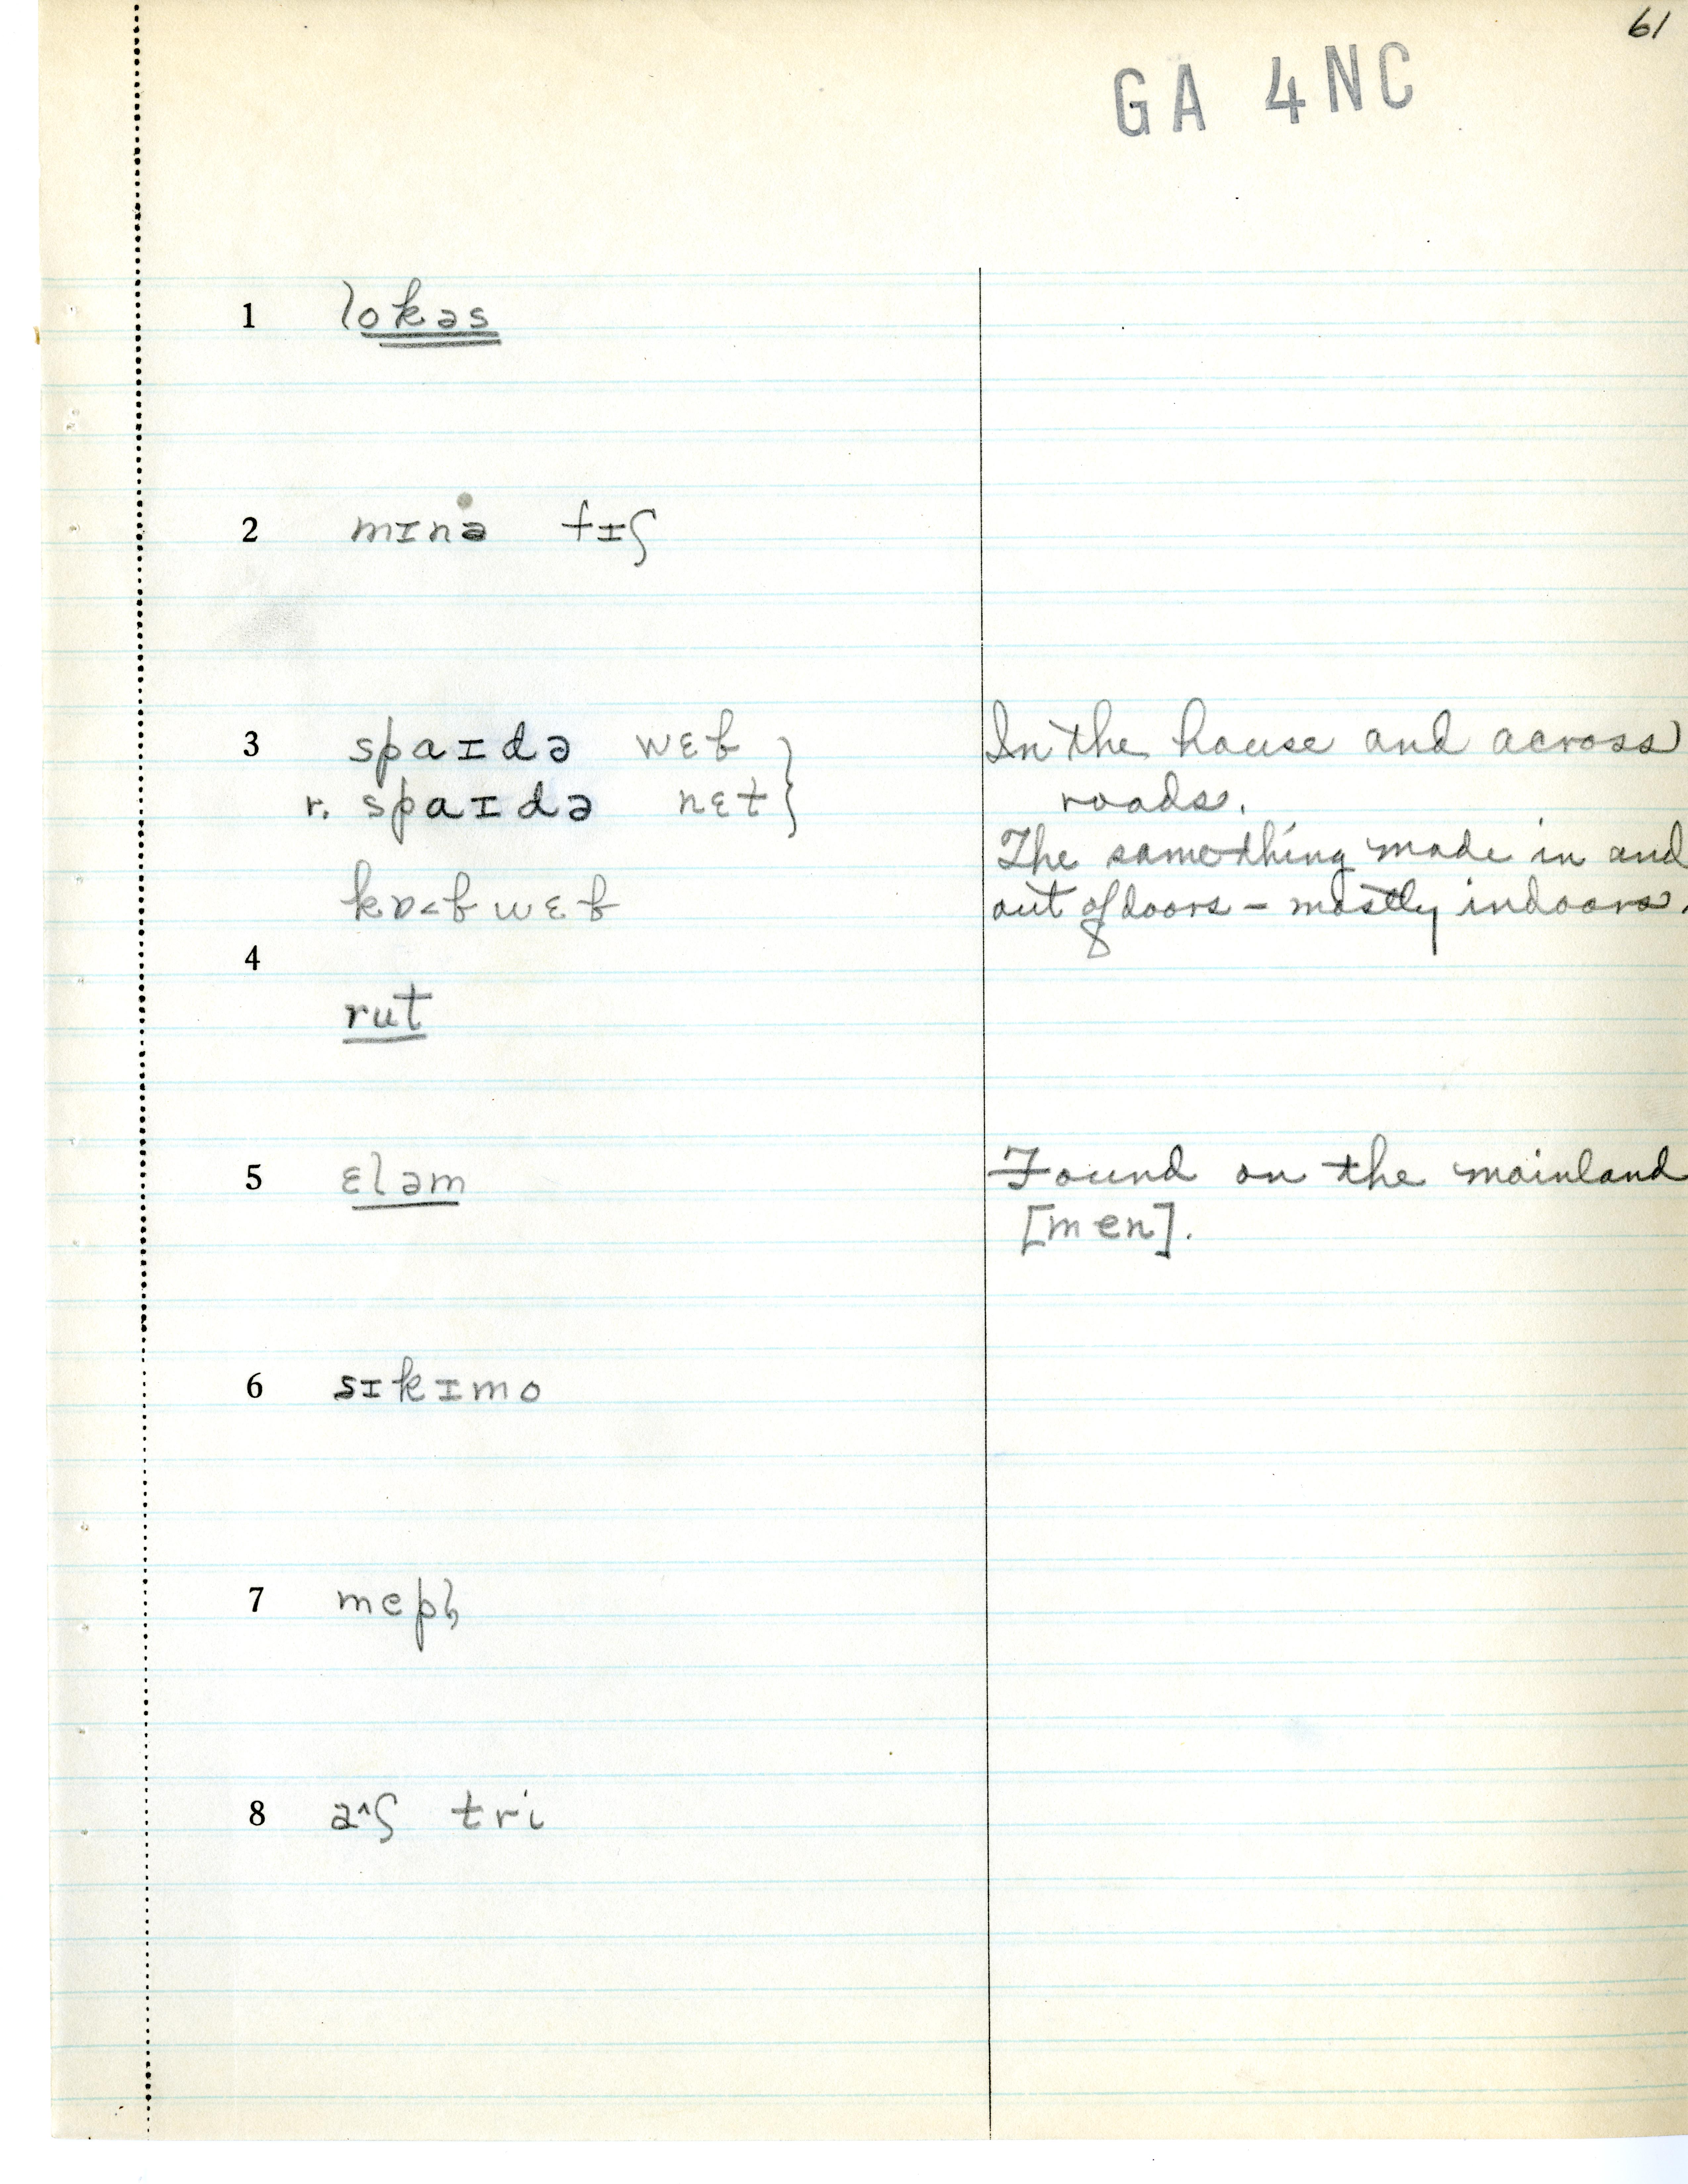 61
GA 4NC
1 lokəs
2 mɪnə fɪʃ
3 spaɪdə wɛɓ
r. spaɪdə nɛt
In the house and across
roads.
The same thing made in and
out of doors – mostly indoors.
kɒ˂ɓwɛɓ
4
rut
5 ɛləm
Found on the mainland
[men].
6 sɪkɪmo
7 mepl̩
8 a^ʃ tri